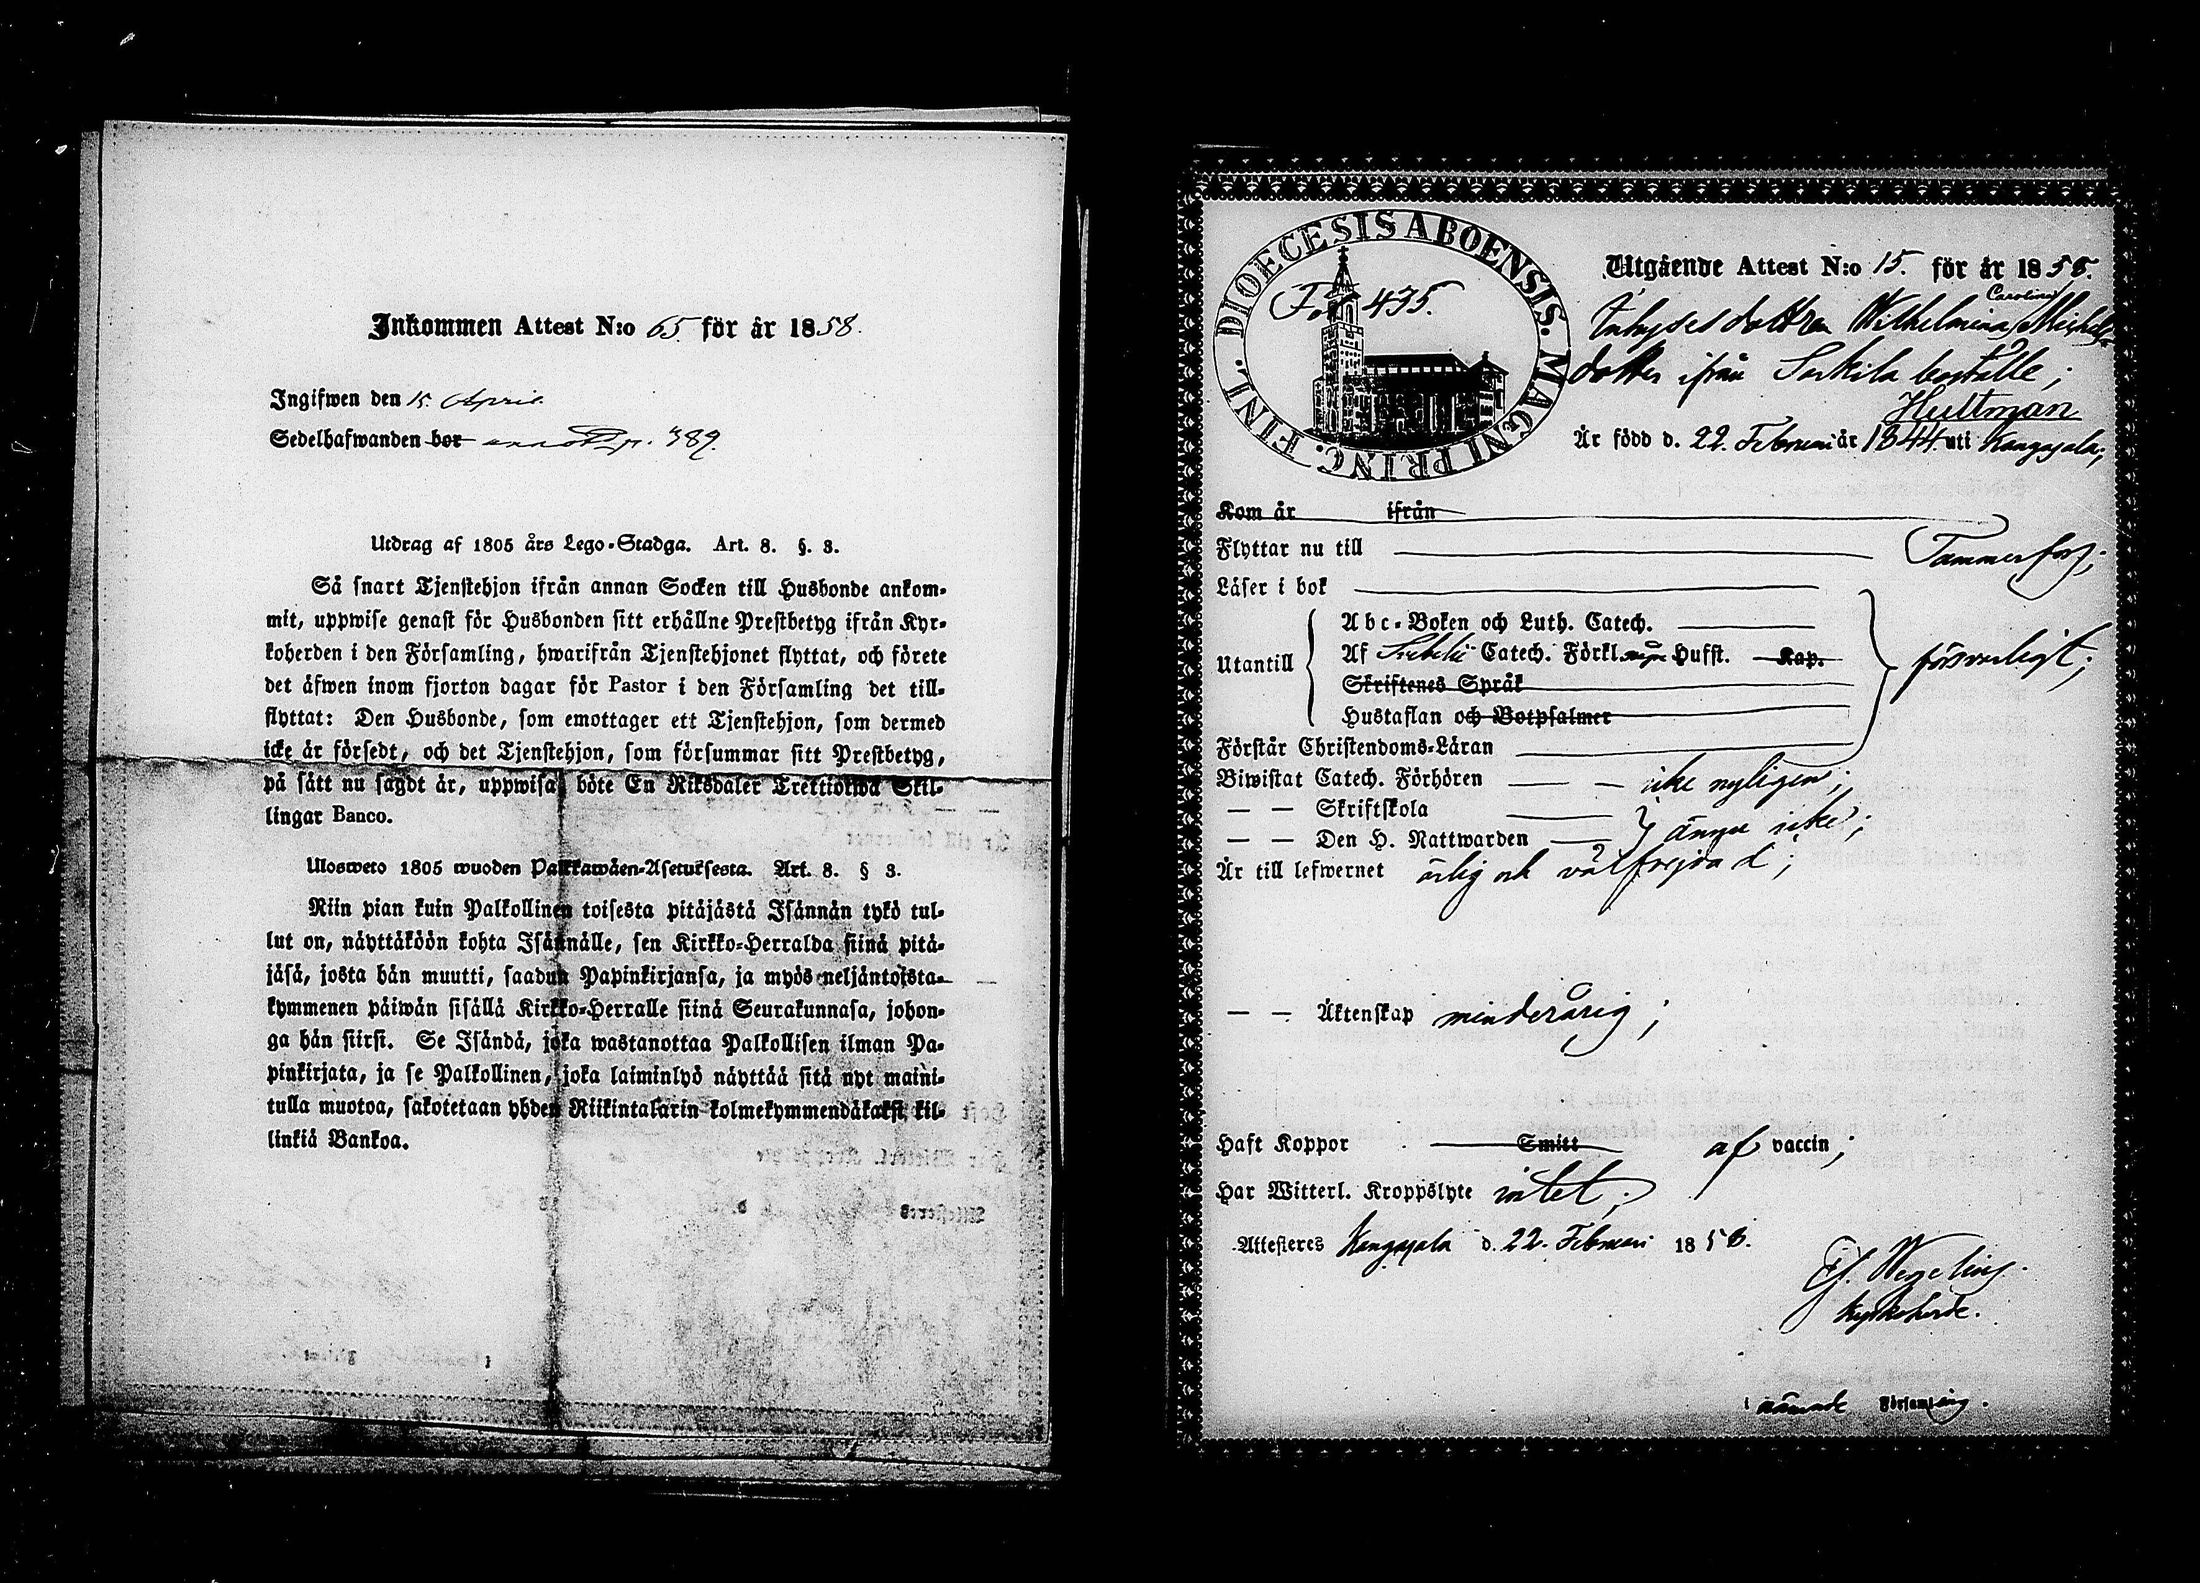 Inkommen Attest N:o 65. för år 1858.
Ingifwen den 15. April
Sedelhafwanden bor p. 389.
Utdrag af 1805 års Lego-Stadga. Art. 8. §. 3.
Så snart Tjenstehjon ifrån annan Socken till Husbonde ankom-
mit, uppwise genast för Husbonden sitt erhållne Prestbetyg ifrån Kyr-
koherden i den Församling, hwarifrån Tjenstehjonet flyttat, och förete
det äfwen inom fjorton dagar för Pastor i den Församling det till-
flyttat: Den Husbonde, som emottager ett Tjenstehjon, som dermed
icke är försedt, och det Tjenstehjon, som försummar sitt Prestbetyg,
på sätt nu sagdt är, uppwisa, böte En Riksdaler Trettiotwå Skil-
lingar Banco.
Ulosweto 1805 wuoden Palkkawäen-Asetuksesta. Art. 8. § 3.
Niin pian kuin Palkollinen toisesta pitäjästä Isännän tykö tul-
lut on, näyttäköön kohta Isännälle, sen Kirkko-Herralda siinä pitä-
jäsä, josta hän muutti, saadun Papinkirjansa, ja myös neljäntoista-
kymmenen päiwän sisällä Kirkko-Herralle siinä Seurakunnasa, johon-
ga hän siirsi. Se Isändä, joka wastanottaa Palkollisen ilman Pa-
pinkirjata, ja se Palkollinen, joka laiminlyö näyttää sitä nyt maini-
tulla muotoa, sakotetaan yhden Riikintalarin kolmekymmendäkaksi kil-
linkiä Bankoa.
DIOECESIS ABOENSIS. MAGNI PRINC. FINL.
Fol 435.
Utgående Attest N:o 15. för år 1858.
Carolina
Inhyses dottren Wilhelmina Michels
dotter ifrån Sarkila boställe;
Hultman
Är född d. 22. Februari år 1844. uti Kangasala;
Kom år ifrån
Flyttar nu till Tammerfors;
Läser i bok
Abc-Boken och Luth. Catech.
Utantill Af Svebelii Catech. Förkl. Hufst. Kap.
försvarligt;
Skriftenes Språk
Hustaflan och Botpsalmer
Förstår Christendoms-Läran
Biwistat Catech. Förhören icke nyligen;
— — Skriftskola
— — Den H. Nattwarden ännu icke;
Är till lefwernet ärlig och välfrejdad;
— — Äktenskap minderårig;
Haft Koppor Smitt af vaccin;
Har Witterl. Kroppslyte intet;
Attesteres Kangasala d. 22. Februari 1858.
Ef. Wegelius.
Kyrkoherde.
i nämnde Församling.